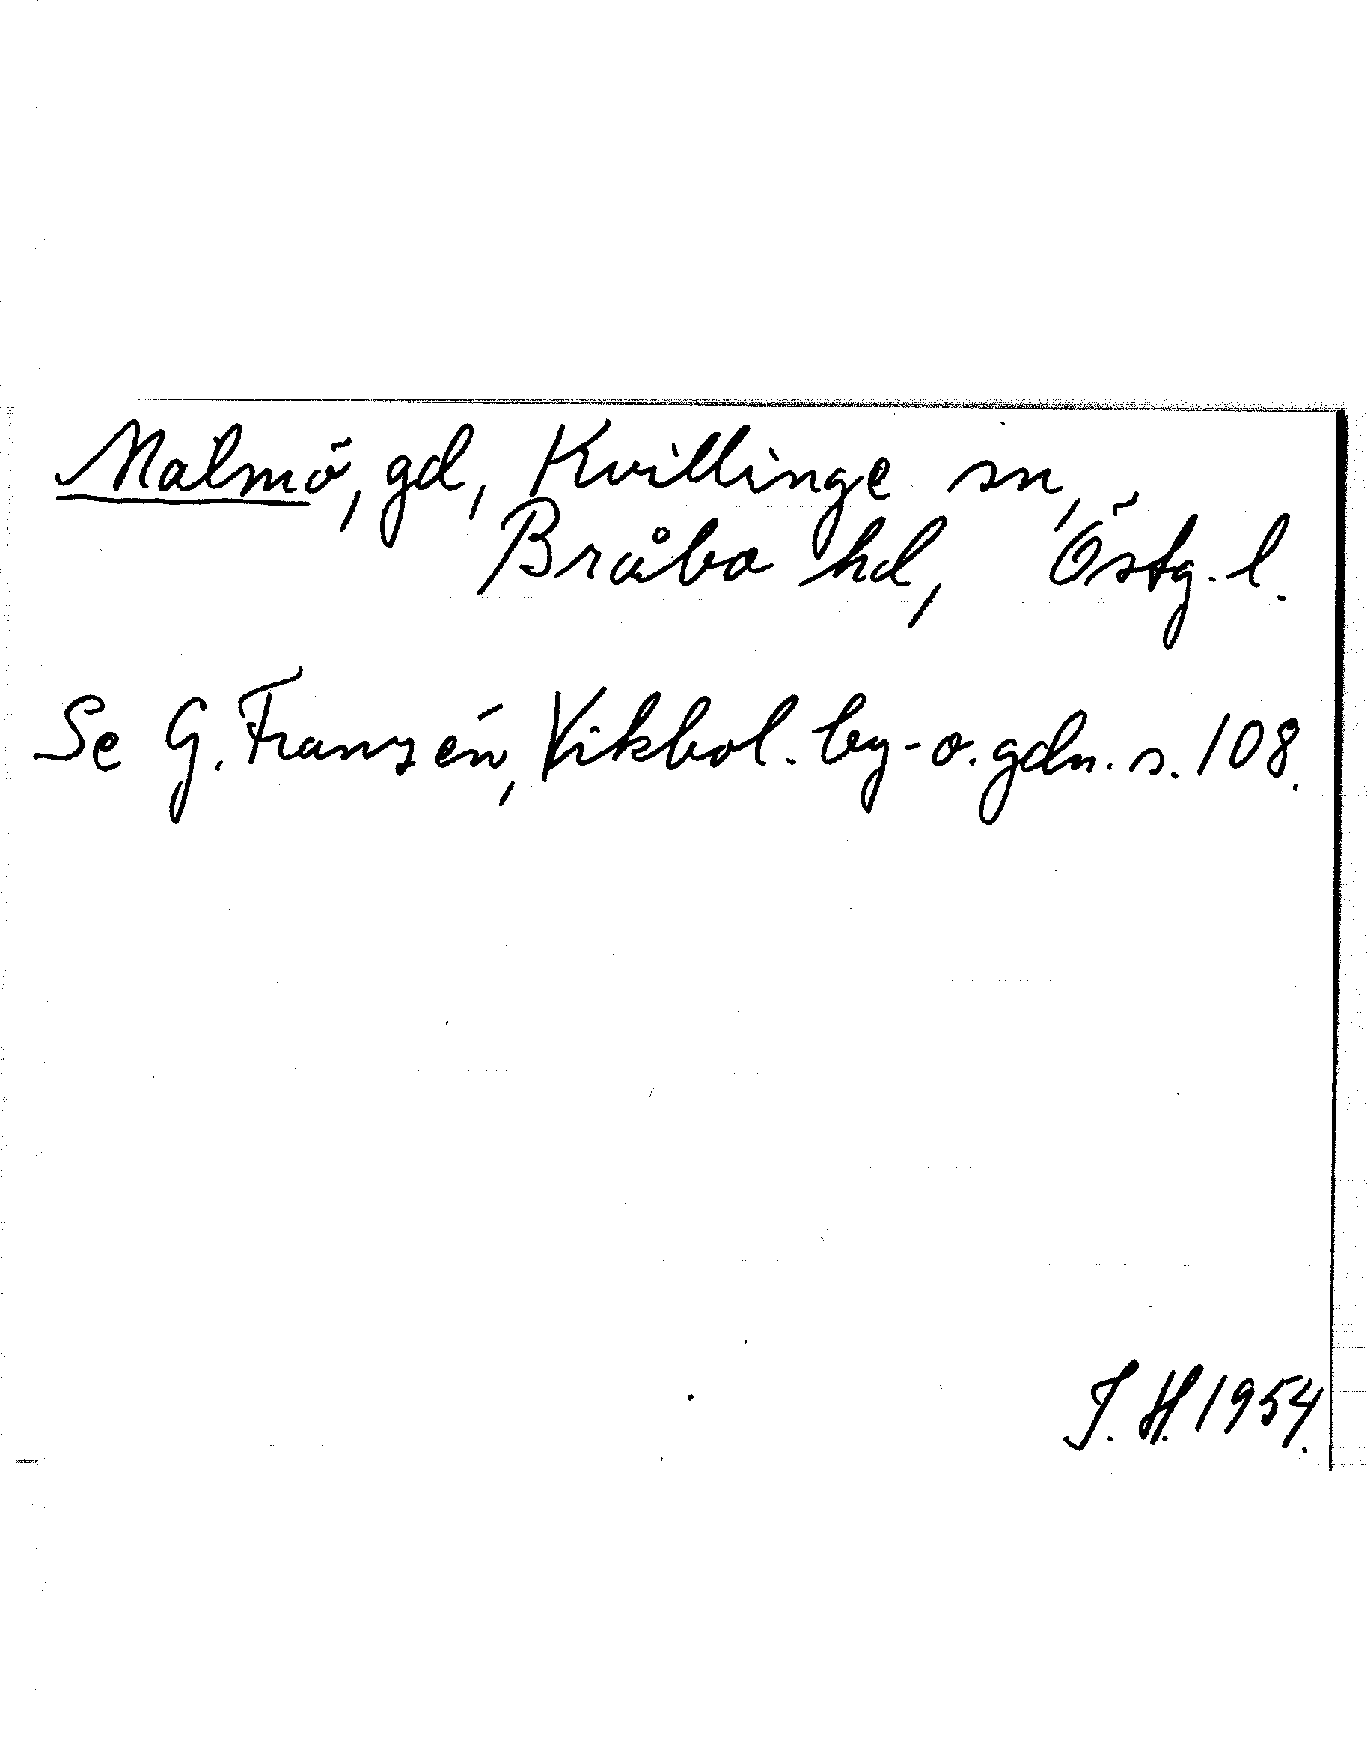 Malmö, gd, Kvillinge sn,
Bråbo hd, Östg. l.
Se G. Franzén, Vikbol. by- o. gdn. s. 108.
J. H. 1954.